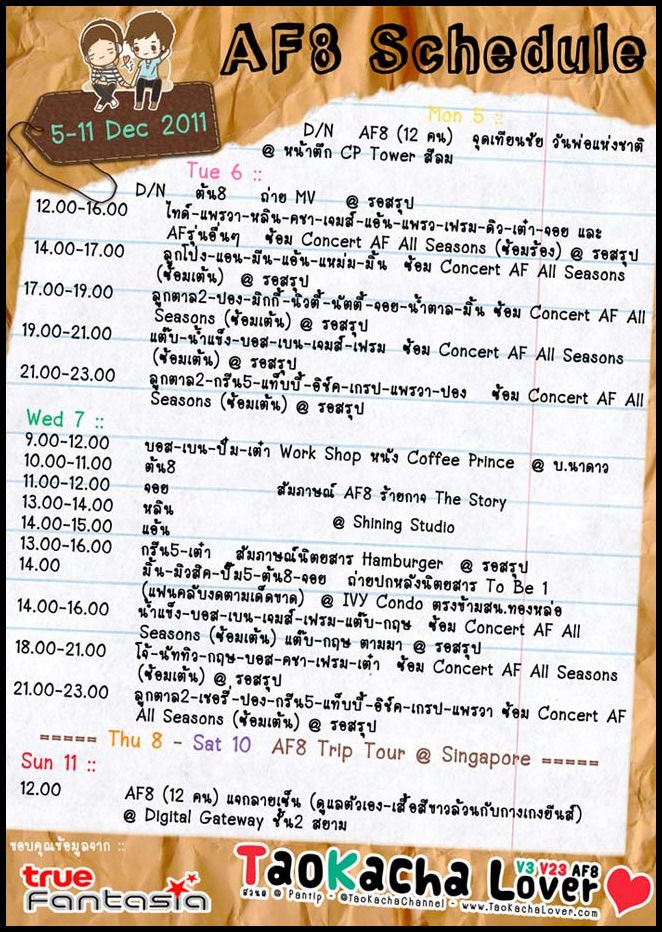 AF8 Schedule
5-11 Dec 2011
Mon 5 ::
D/N AF8 (12 คน) จุดเทียนชัย วันพ่อแห่งชาติ
@ หน้าตึก CP Tower สีลม
Tue 6 ::
D/N ต้น8 ถ่าย MV @ รอสรุป
12.00-16.00 ไทด์-แพรวา-หลิน-คชา-เจมส์-แอ้น-แพรว-เฟรม-ดิว-เต๋า-จอย และ
AFรุ่นอื่นๆ ซ้อม Concert AF All Seasons (ซ้อมร้อง) @ รอสรุป
14.00-17.00 ลูกโป่ง-แอน-มีน-แอ้น-แหม่ม-มิ้น ซ้อม Concert AF All Seasons
(ซ้อมเต้น) @ รอสรุป
17.00-19.00 ลูกตาล2-ปอง-มิกกี้-นิวตี้-นัตตี้-จอย-น้ำตาล-มิ้น ซ้อม Concert AF All
Seasons (ซ้อมเต้น) @ รอสรุป
19.00-21.00 แต๊บ-น้ำแข็ง-บอส-เบน-เจมส์-เฟรม ซ้อม Concert AF All Seasons
(ซ้อมเต้น) @ รอสรุป
21.00-23.00 ลูกตาล2-กรีน5-แท็บบี้-อิช์ค-เกรป-แพรวา-ปอง ซ้อม Concert AF All
Seasons (ซ้อมเต้น) @ รอสรุป
Wed 7 ::
9.00-12.00 บอส-เบน-ปั๊ม-เต๋า Work Shop หนัง Coffee Prince @ บ.นาดาว
10.00-11.00 ต้น8
11.00-12.00 จอย สัมภาษณ์ AF8 ร้ายกาจ The Story
13.00-14.00 หลิน
14.00-15.00 แอ้น @ Shining Studio
13.00-16.00 กรีน5-เต๋า สัมภาษณ์นิตยสาร Hamburger @ รอสรุป
14.00 มิ้น-มิวสิค-ปั๊ม5-ต้น8-จอย ถ่ายปกหลังนิตยสาร To Be 1
(แฟนคลับงดตามเด็ดขาด) @ IVY Condo ตรงข้ามสน.ทองหล่อ
14.00-16.00 น้ำแข็ง-บอส-เบน-เจมส์-เฟรม-แต๊บ-กฤษ ซ้อม Concert AF All
Seasons (ซ้อมเต้น) แต๊บ-กฤษ ตามมา @ รอสรุป
18.00-21.00 โจ้-นัททิว-กฤษ-บอส-คชา-เฟรม-เต๋า ซ้อม Concert AF All Seasons
(ซ้อมเต้น) @ รอสรุป
21.00-23.00 ลูกตาล2-เชอรี่-ปอง-กรีน5-แท็บบี้-อิช์ค-เกรป-แพรวา ซ้อม Concert AF
All Seasons (ซ้อมเต้น) @ รอสรุป
===== Thu 8 - Sat 10 AF8 Trip Tour @ Singapore =====
Sun 11 ::
12.00 AF8 (12 คน) แจกลายเซ็น (ดูแลตัวเอง-เสื้อสีขาวล้วนกับกางเกงยีนส์)
@ Digital Gateway ชั้น2 สยาม
ขอบคุณข้อมูลจาก ::
true Fantasia
TaoKacha Lover V3 V23 AF8
สวนอ @ Pantip - @TaoKachaChannel - www.TaoKachaLover.com